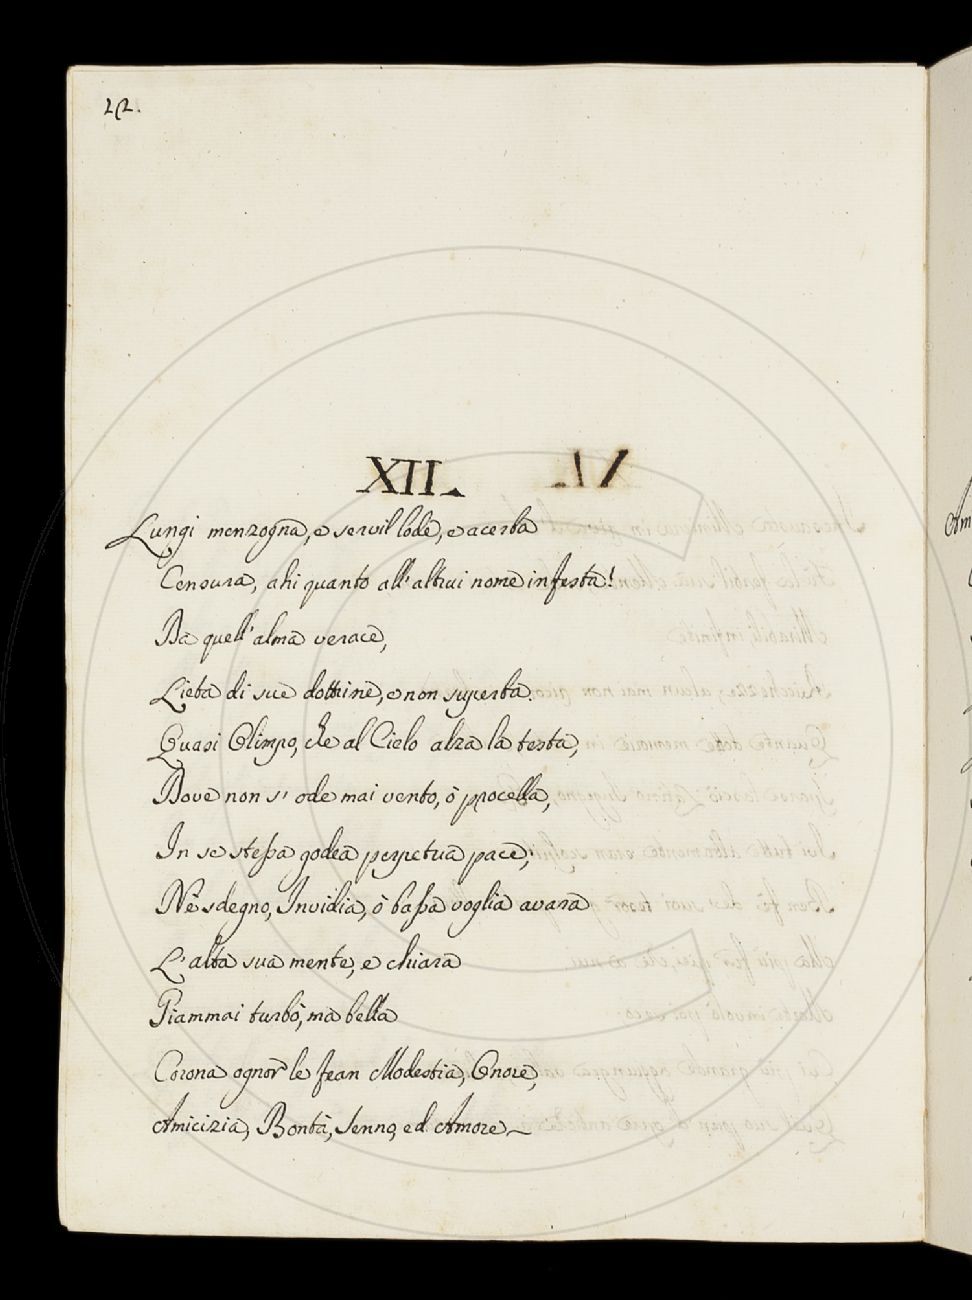 XII.
Lungi menzogna, e servil lode, e acerba
Censura, ahi quanto all'altrui nome infesta!
Da quell'alma verace,
Lieta di sue dottrine, e non superba.
Quasi Olimpo, che al Cielo alza la testa,
Dove non s'ode mai vento, ò procella,
In se stessa godea perpetua pace;
Nè sdegno, Invidia, ò bassa voglia avara
L'alta sua mente, e chiara
Giammai turbò, ma bella
Corona ognor le fean Modestia, Onore,
Amicizia, Bontà, Senno, ed Amore